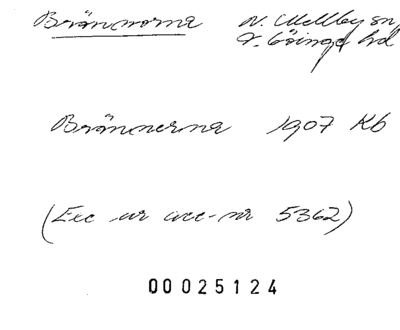 Brännorna N. Mellby sn,
V. Göinge hd
Brännerna 1907 Kb
(Exc ur acc-nr 5362)
00025124